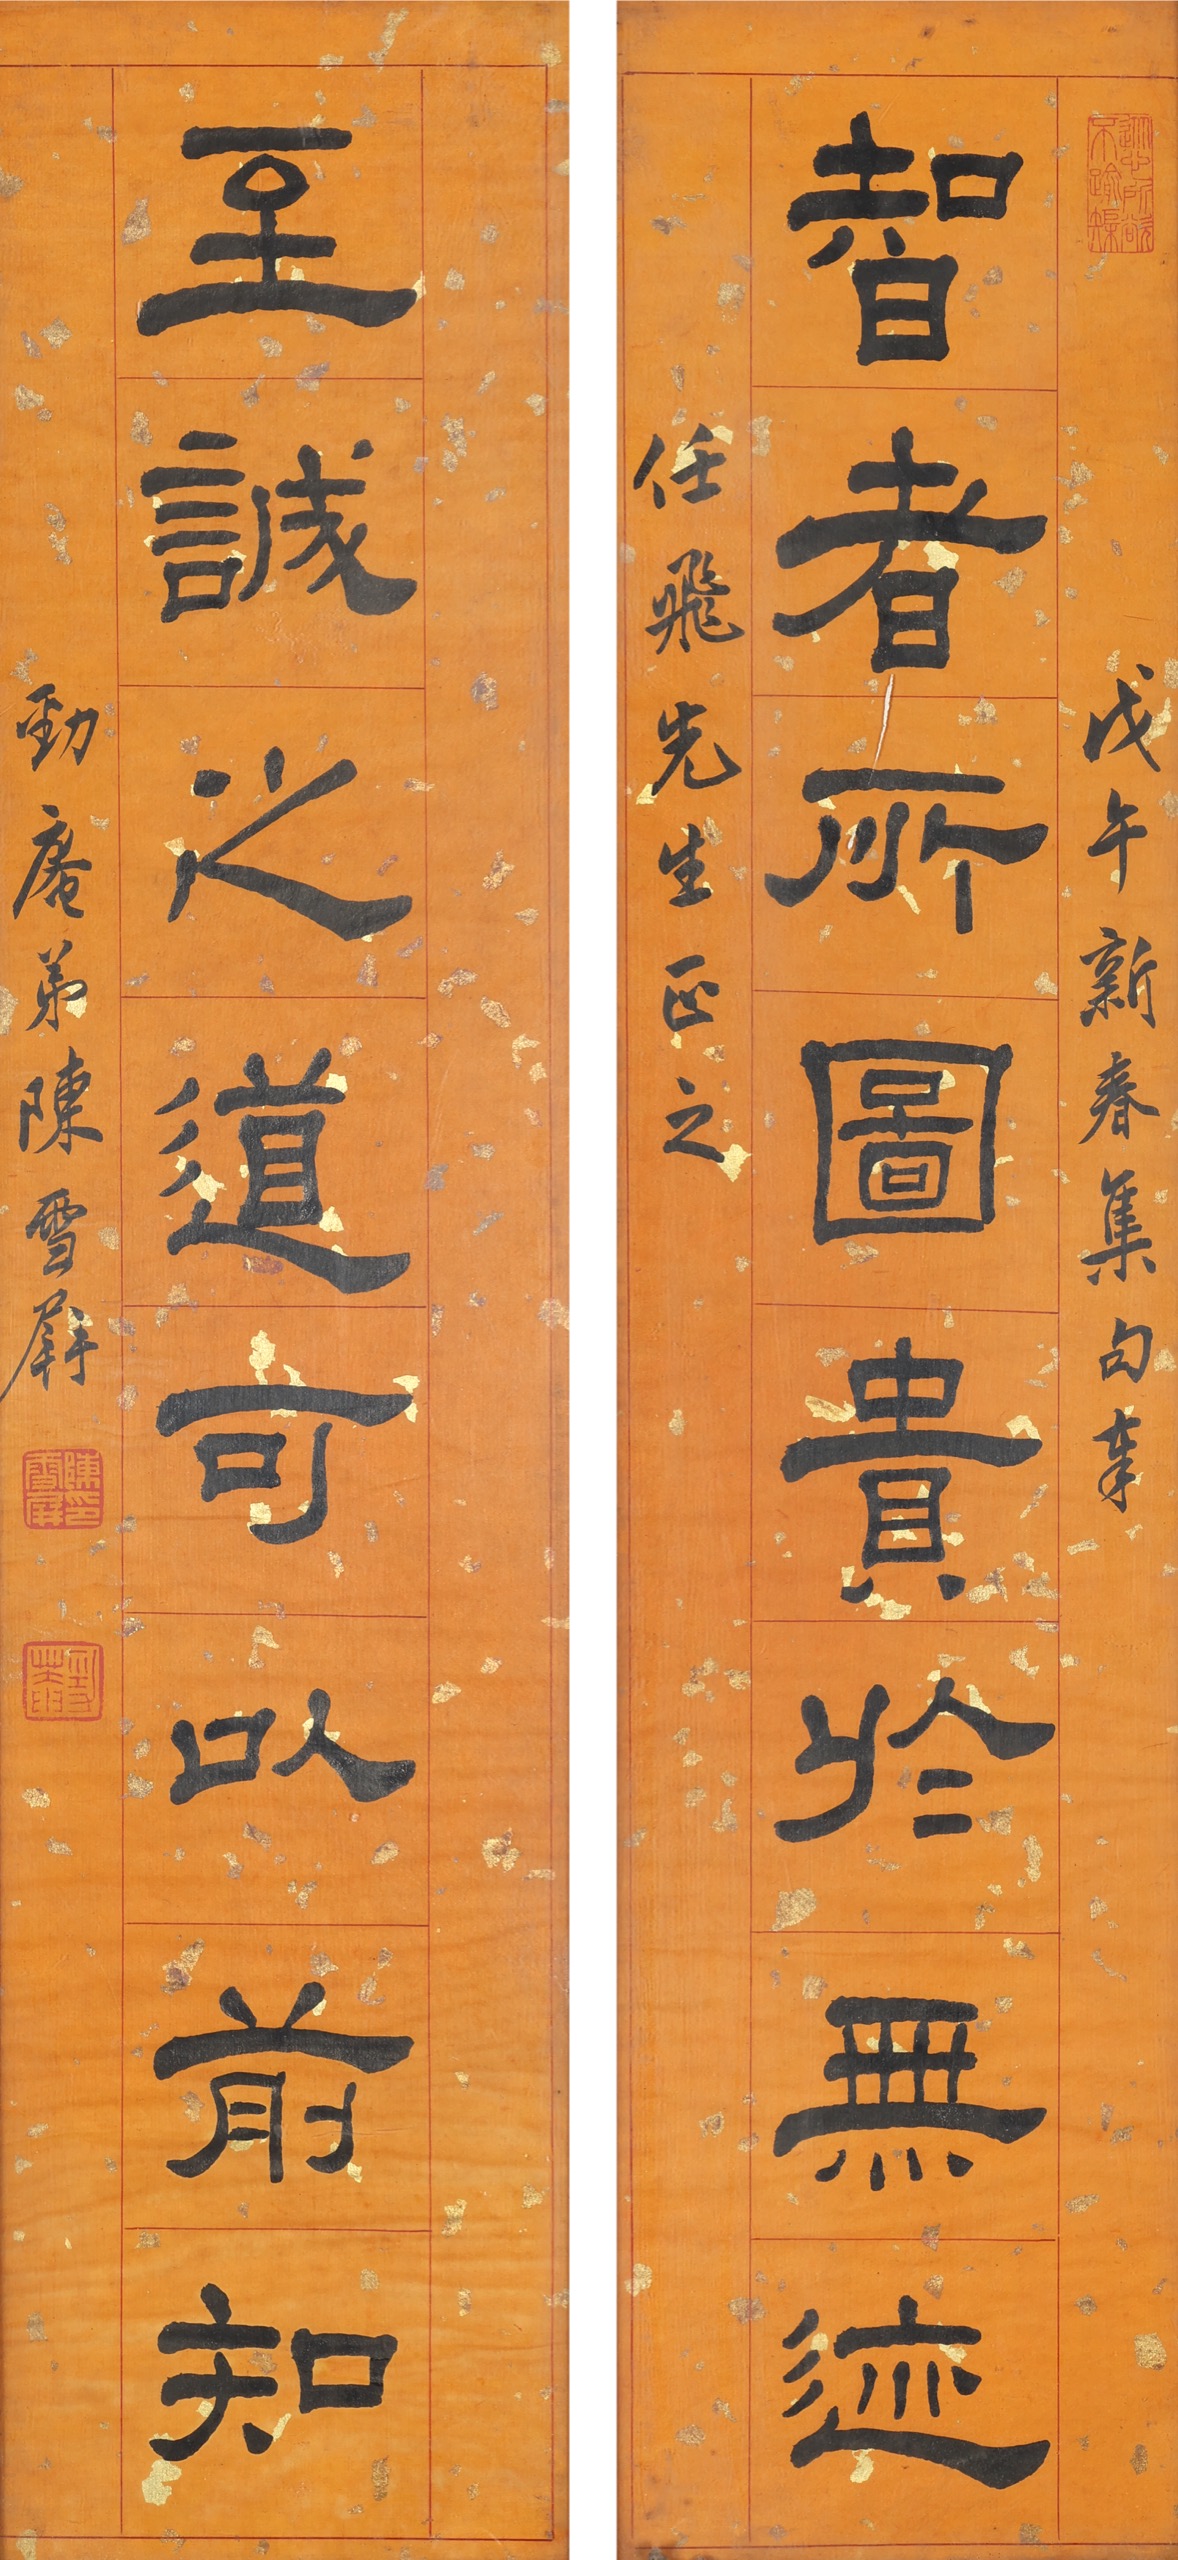 從心所欲不踰榘
戊午新春集句奉
智者所圖貴於無迹
任飛先生正之
至誠之道可以前知
勁庵弟陳雪屏
陳印雪屏